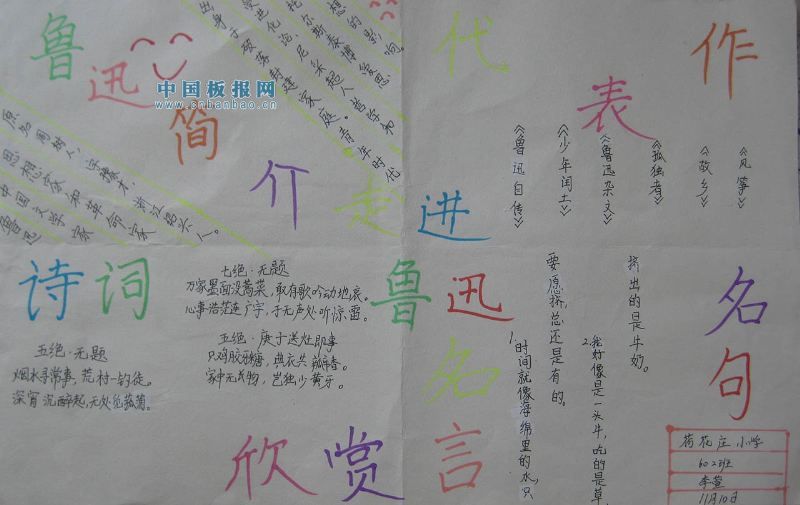 鲁迅简介
中国板报网
www.cnbanbao.cn
鲁迅
中国文学家
思想家和革命家
原名周树人,字豫才,浙江绍兴人。
出身于破落封建家庭。青年时代
受进化论、尼采超人哲学和
托尔斯泰博爱思想的影响。
走进鲁迅
代表作
《风筝》
《故乡》
《孤独者》
《鲁迅杂文》
《少年闰土》
《鲁迅自传》
诗词
欣赏
七绝·无题
万家墨面没蒿莱,敢有歌吟动地哀。
心事浩茫连广宇,于无声处听惊雷。
五绝·庚子送灶即事
只鸡胶牙糖,典衣供瓣香。
家中无长物,岂独少黄羊。
五绝·无题
烟水寻常事,荒村一钓徒。
深宵沉醉起,无处觅菰蒲。
名言
名句
1.时间就像海绵里的水,只
要愿挤,总还是有的。
2.我好像是一头牛,吃的是草,
挤出的是牛奶。
荷花庄小学
602班
李萱
11月10日